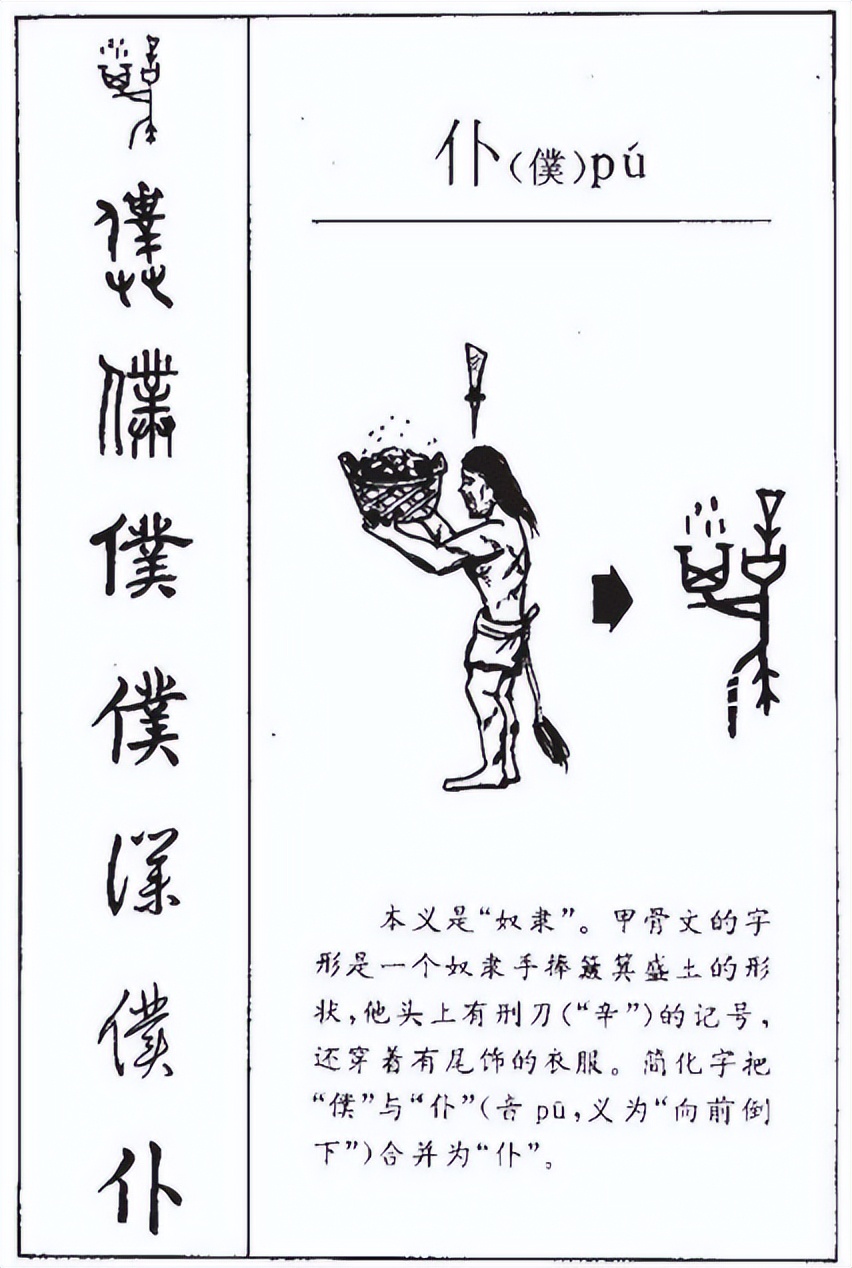 仆(僕)pú
本义是“奴隶”。甲骨文的字
形是一个奴隶手捧簸箕盛土的形
状,他头上有刑刀(“辛”)的记号,
还穿着有尾饰的衣服。简化字把
“僕”与“仆”(音 pū,义为“向前倒
下”)合并为“仆”。
僕
僕
僕
仆